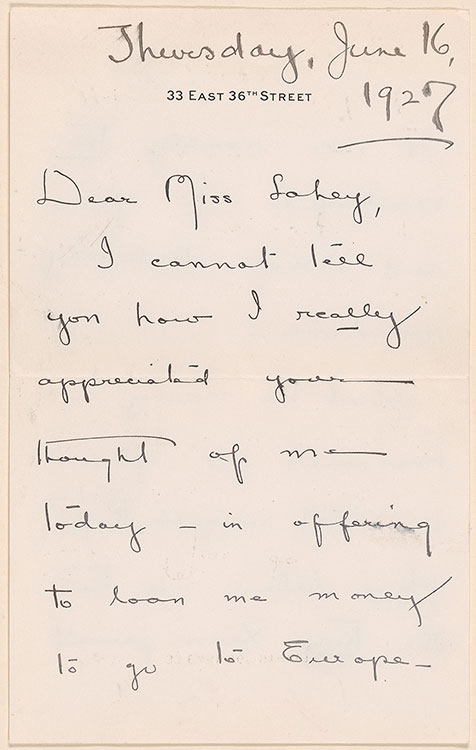 Thursday, June 16,
33 EAST 36TH STREET
1927
Dear Miss Lahey,
I cannot tell
you how I really
appreciated your
thought of me
today – in offering
to loan me money
to go to Europe –